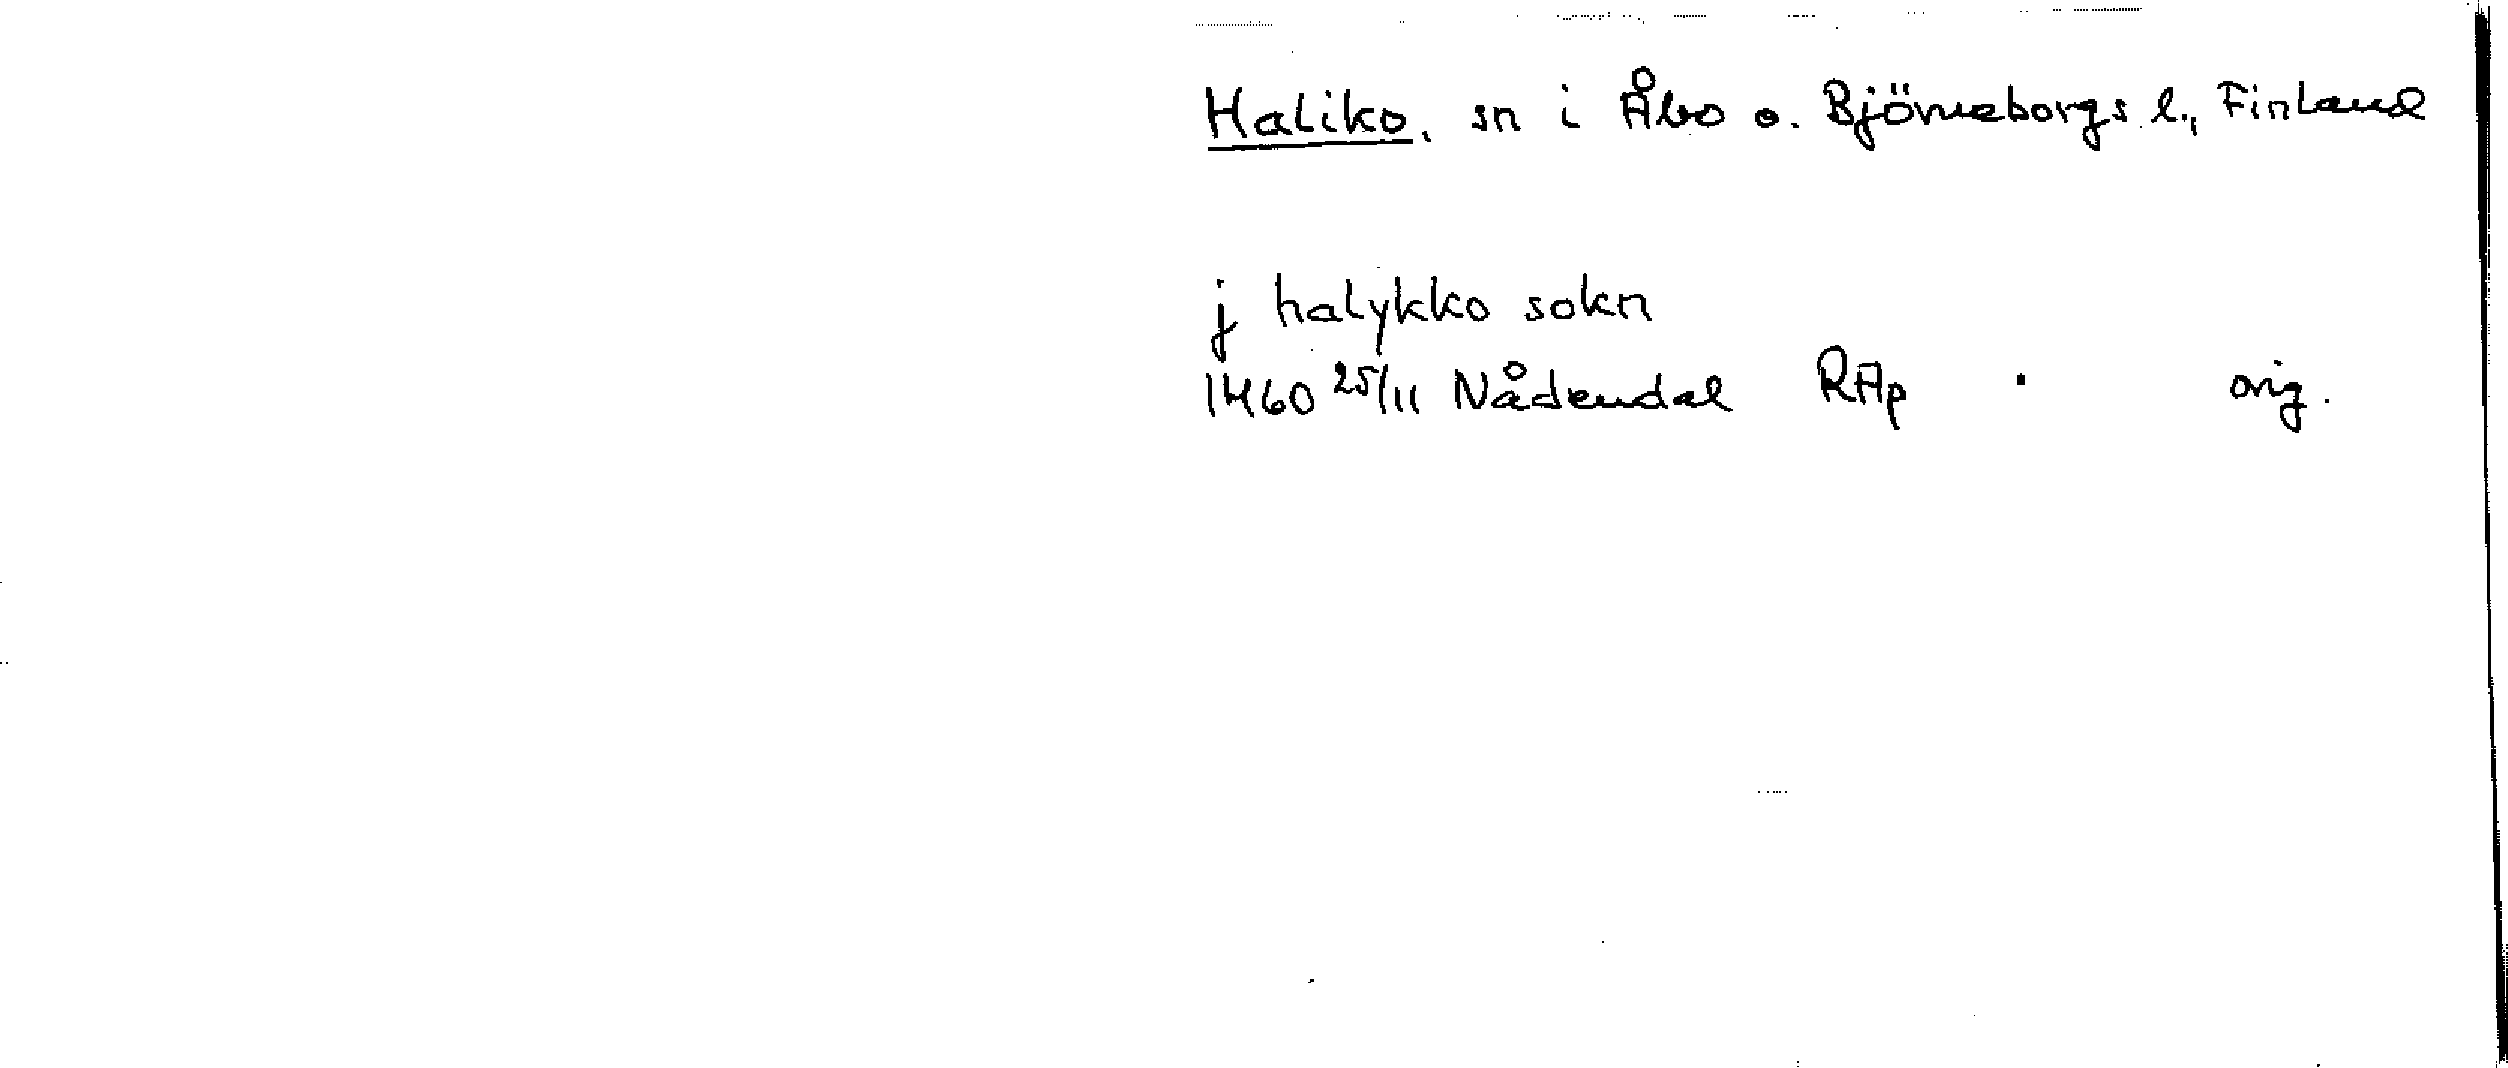 Haliko, sn i Åbo o. Björneborgs l., Finland
j halykko sokn
1460 25/11 Nådendal RAp orig.